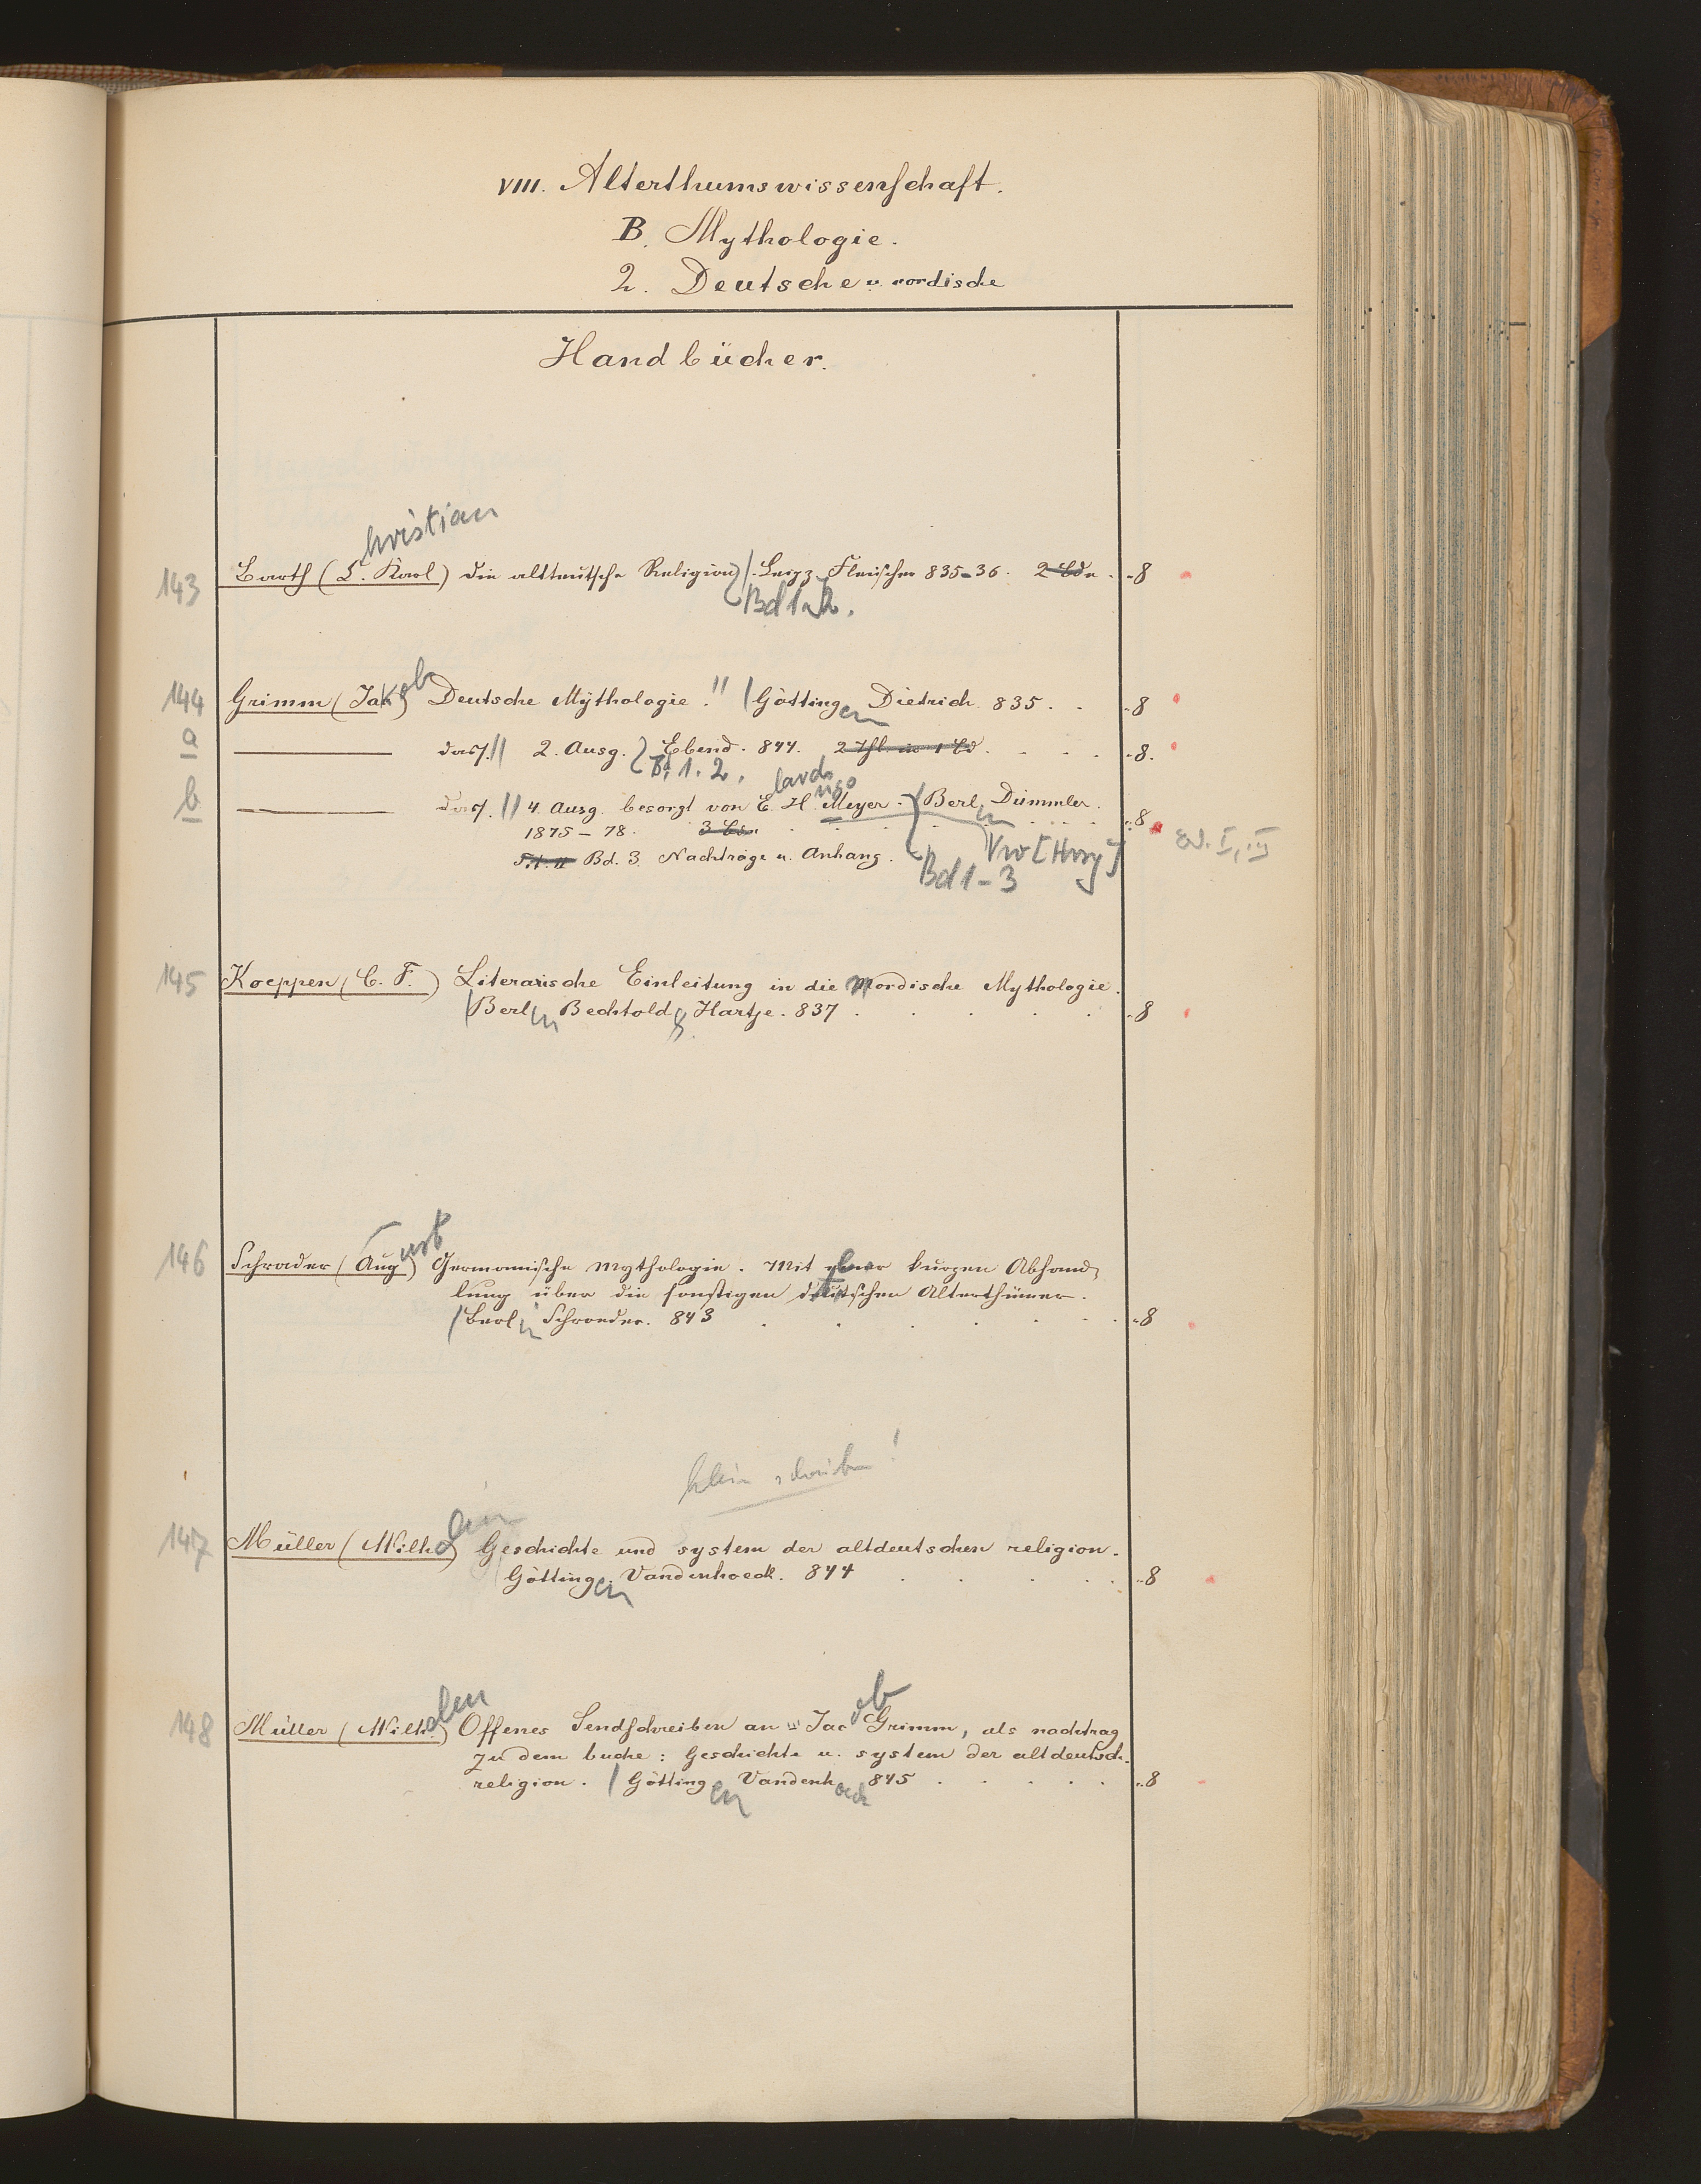 VIII. Alterthumswissenschaft.
B. Mythologie.
2. Deutsche u. nordische
Handbücher.
hristian
143 Barth (C. Karl) Die altteutsche Religion / Leipz. Fleischer 835-36. 2 Bde. 8
Bd 1. 2.
144 Grimm (Jakob) Deutsche Mythologie. // / Göttingen Dietrich. 835. 8
a dass. // 2. Ausg. Ebend. 844. 2 Thl. in 1 Bd. 8.
Bd 1. 2.
lard
ugo
b dass. // 4. Ausg. besorgt von E. H. Meyer. Berlin Dümmler.
1875-78. 3 Bde. 8
Bd. 3. Nachträge u. Anhang. [Hrsg]
Bd 1-3
Bd. I, II
145 Koeppen (C. F.) Literarische Einleitung in die Nordische Mythologie.
/ Berlin Bechtold & Hartje. 837 8
146 Schrader (August) Germanische Mythologie. Mit einer kurzen Abhand-
lung über die sonstigen deutschen Alterthümer.
/ Berlin Schroeder. 843 8
klein schreiben!
147 Müller (Wilhelm) Geschichte und system der altdeutschen religion.
/ Göttingen Vandenhoeck. 844 8
148 Müller (Wilhelm) Offenes Sendschreiben an Jacob Grimm, als nachtrag
zu dem buche: Geschichte u. system der altdeutsch.
religion. / Göttingen Vandenhoeck 845 8